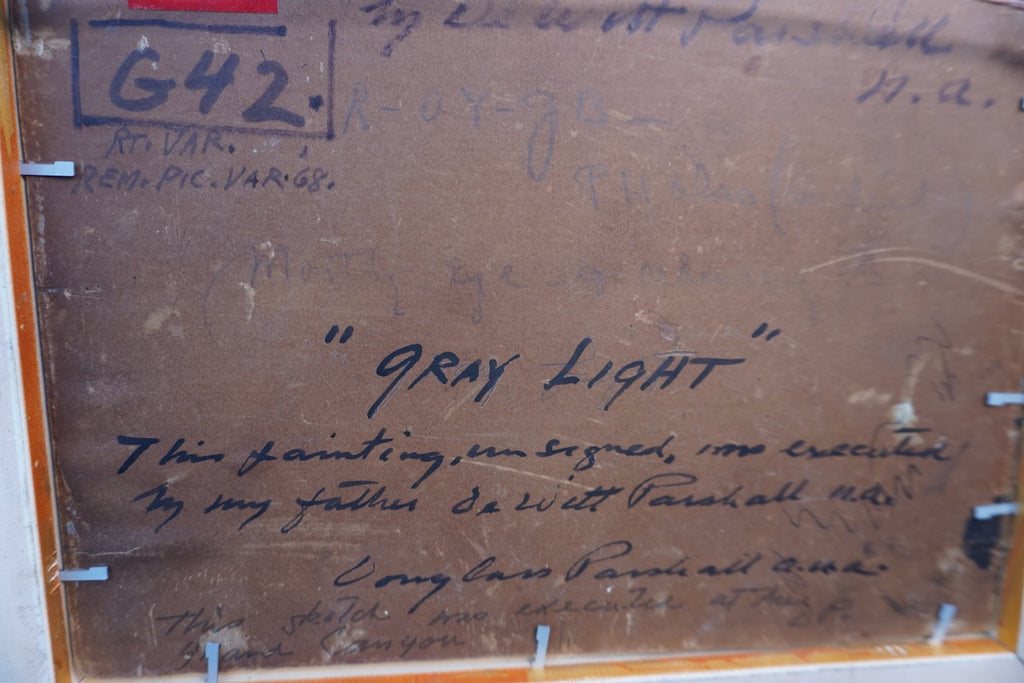 by De Witt Parshall
N.A.
G42.
RT. VAR.
REM. PIC. VAR. 68.
Mostly
"GRAY LIGHT"
This painting, unsigned, was executed
by my father De Witt Parshall N.A.
Douglass Parshall A.N.A.
This sketch was executed at the
Grand Canyon D.P.